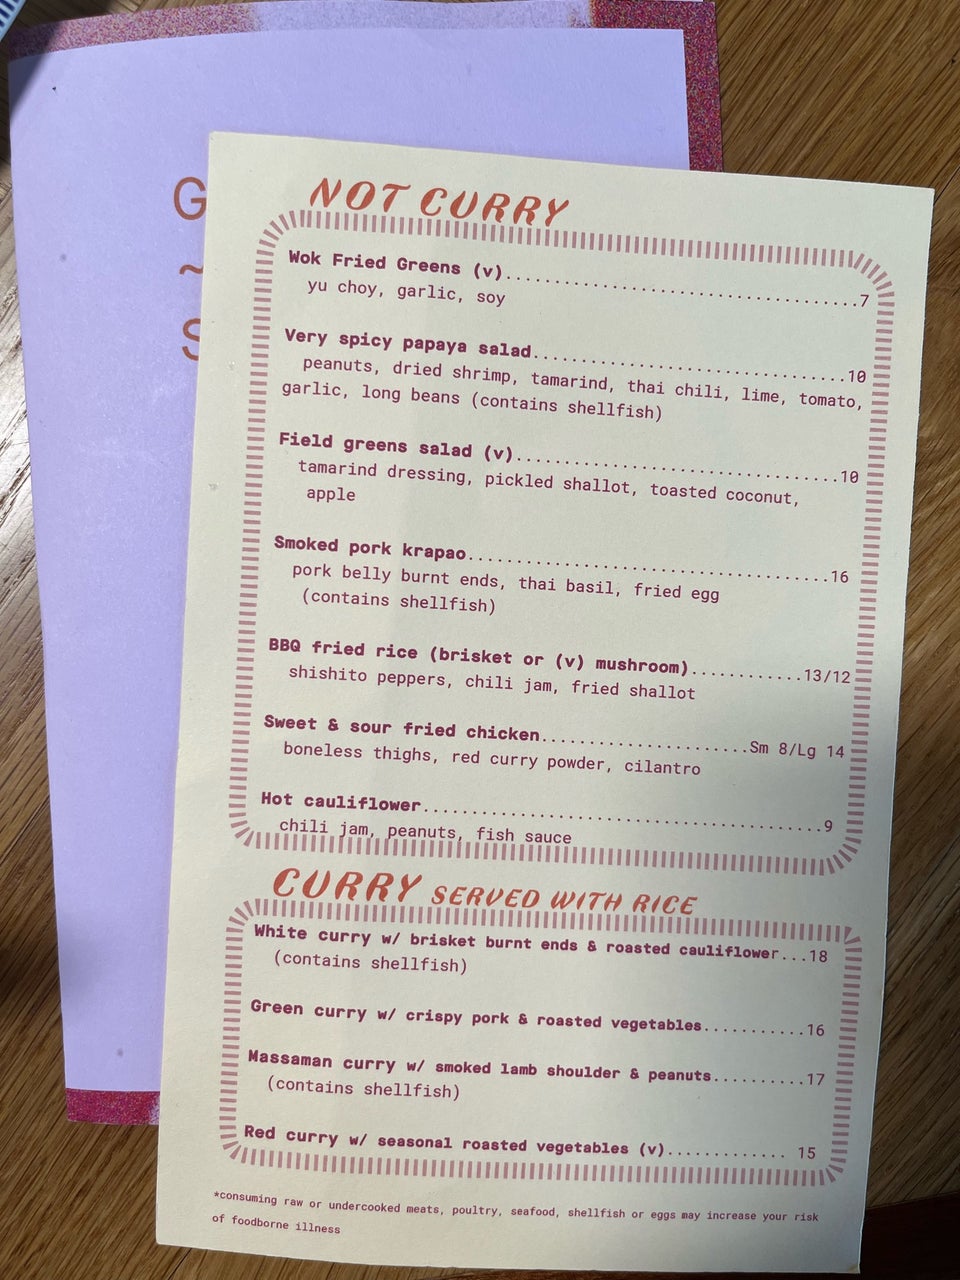 G
~
S
NOT CURRY
Wok Fried Greens (v)........................................7
yu choy, garlic, soy
Very spicy papaya salad....................................10
peanuts, dried shrimp, tamarind, thai chili, lime, tomato,
garlic, long beans (contains shellfish)
Field greens salad (v).....................................10
tamarind dressing, pickled shallot, toasted coconut,
apple
Smoked pork krapao.........................................16
pork belly burnt ends, thai basil, fried egg
(contains shellfish)
BBQ fried rice (brisket or (v) mushroom)............13/12
shishito peppers, chili jam, fried shallot
Sweet & sour fried chicken.......................Sm 8/Lg 14
boneless thighs, red curry powder, cilantro
Hot cauliflower.............................................9
chili jam, peanuts, fish sauce
CURRY SERVED WITH RICE
White curry w/ brisket burnt ends & roasted cauliflower...18
(contains shellfish)
Green curry w/ crispy pork & roasted vegetables...........16
Massaman curry w/ smoked lamb shoulder & peanuts..........17
(contains shellfish)
Red curry w/ seasonal roasted vegetables (v)............. 15
*consuming raw or undercooked meats, poultry, seafood, shellfish or eggs may increase your risk
of foodborne illness